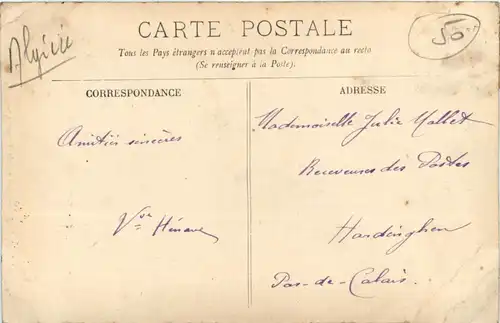 Algérie
50
CARTE POSTALE
Tous les Pays étrangers n'acceptent pas la Correspondance au recto
(Se renseigner à la Poste).
CORRESPONDANCE
Amitiés sincères
Vve
ADRESSE
Mademoiselle Julie Mallet
Receveuse des Postes
Hardinghen
Pas-de-Calais.